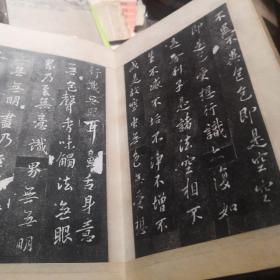 不異色色即是空空
即是色受想行識亦復如
是舍利子是諸法空相不
生不滅不垢不淨不增不
減是故空中無色無受想
行識無眼耳鼻舌身意
無色聲香味觸法無眼
界乃至無意識界無無明
無無明盡乃